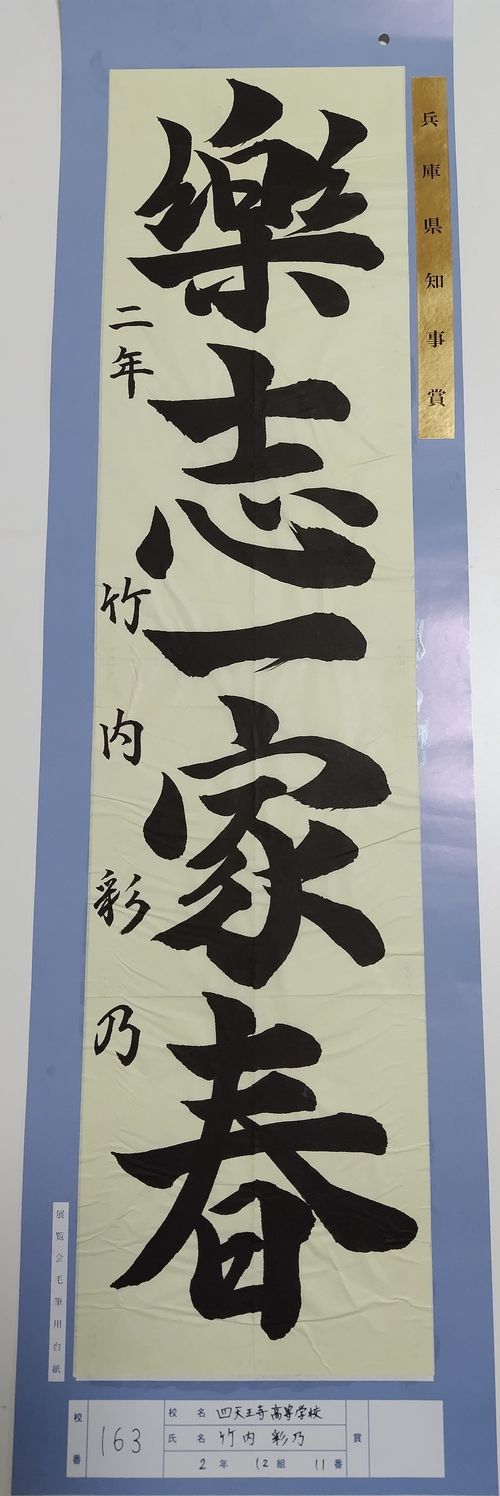 兵庫県知事賞
樂志一家春
二年 竹内彩乃
展覧会毛筆用台紙
校番 163
校名 四天王寺高等学校
氏名 竹内 彩乃
2年 12組 11番
賞